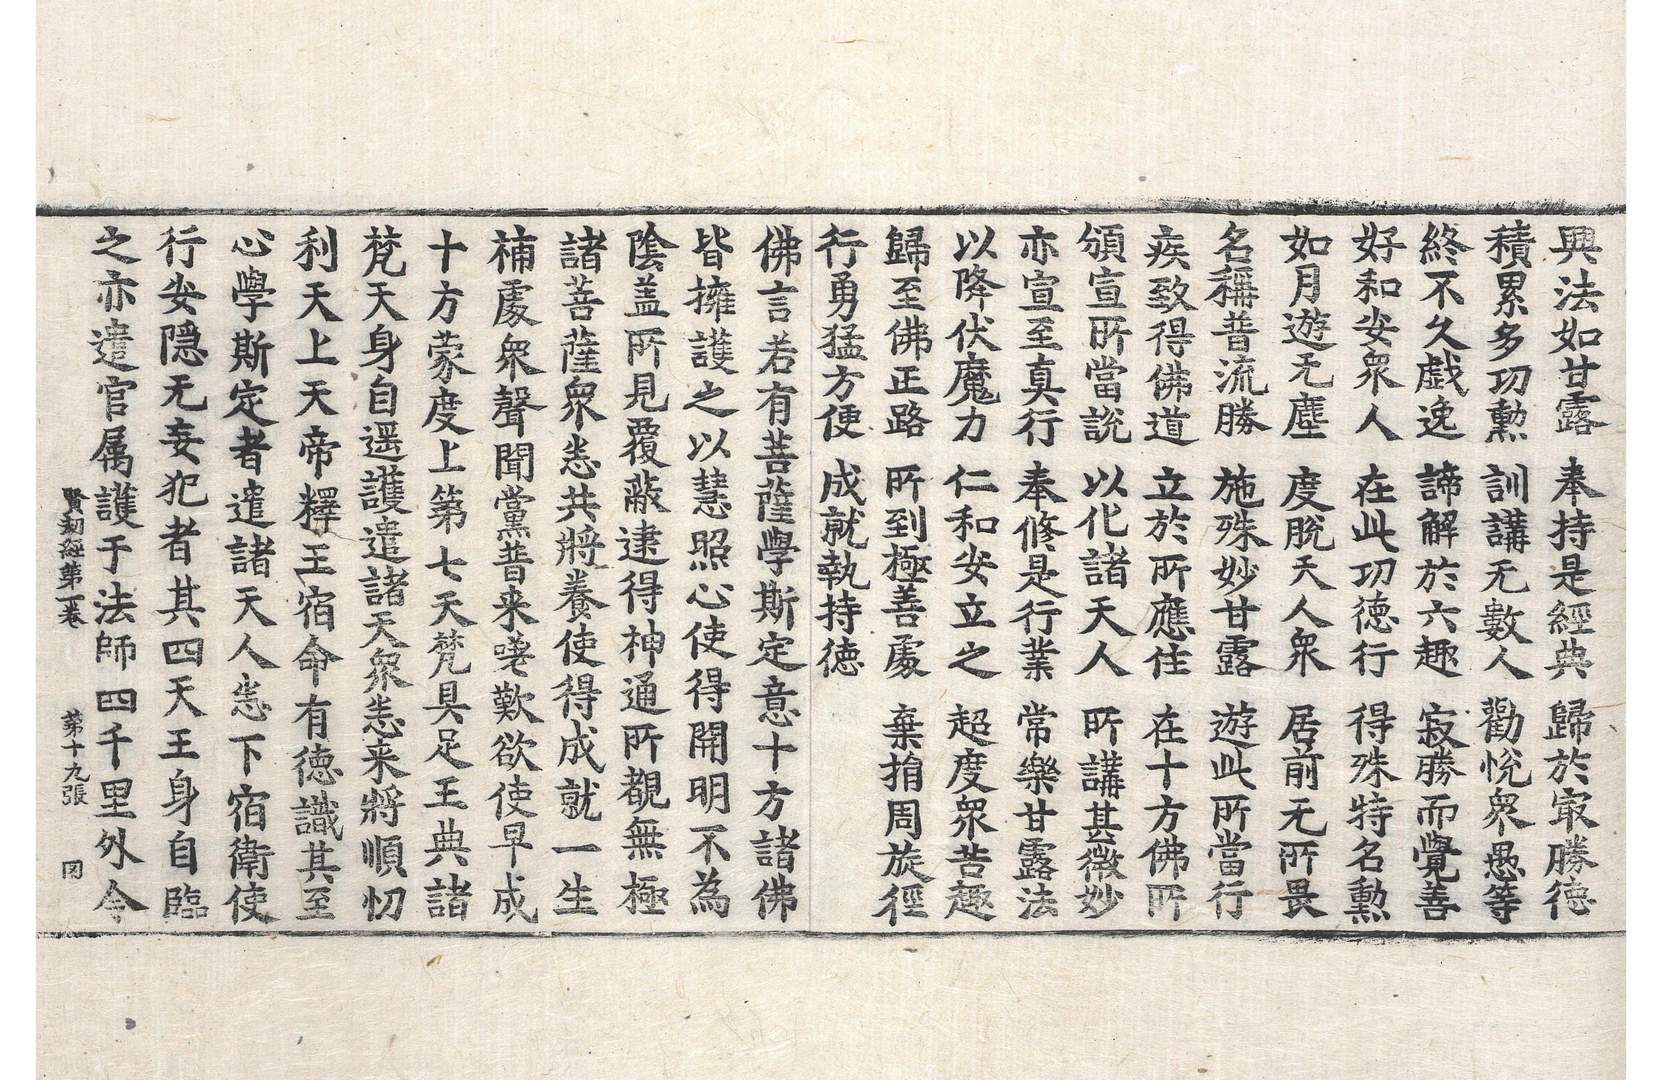 興法如甘露　奉持是經典　歸於㝡勝徳
積累多功勲　訓講无數人　勸恱衆愚等
終不久戯逸　諦解於六趣　寂勝而覺善
好和安衆人　在此功徳行　得殊特名勲
如月遊无塵　度脫天人衆　居前无所畏
名稱普流勝　施殊妙甘露　遊此所當行
疾致得佛道　立於所應住　在十方佛所
頒宣所當說　以化諸天人　所講其微妙
亦宣至真行　奉修是行業　常樂甘露法
以降伏魔力　仁和安立之　超度衆苦趣
歸至佛正路　所到極善處　棄捐周旋徑
行勇猛方便　成就執持徳
佛言若有菩薩學斯定意十方諸佛
皆擁護之以慧照心使得開明不為
陰盖所見覆蔽逮得神通所覩無極
諸菩薩衆恙共將養使得成就一生
補處衆聲聞黨普来嗟歎欲使早成
十方蒙度上第七天梵具足王典諸
梵天身自遥護遣諸天衆恙来將順忉
利天上天帝釋王宿命有徳識其至
心學斯定者遣諸天人恙下宿衛使
行安隠无妄犯者其四天王身自臨
之亦遣官属護于法師四千里外令
賢劫經第一卷　第十九張　冈